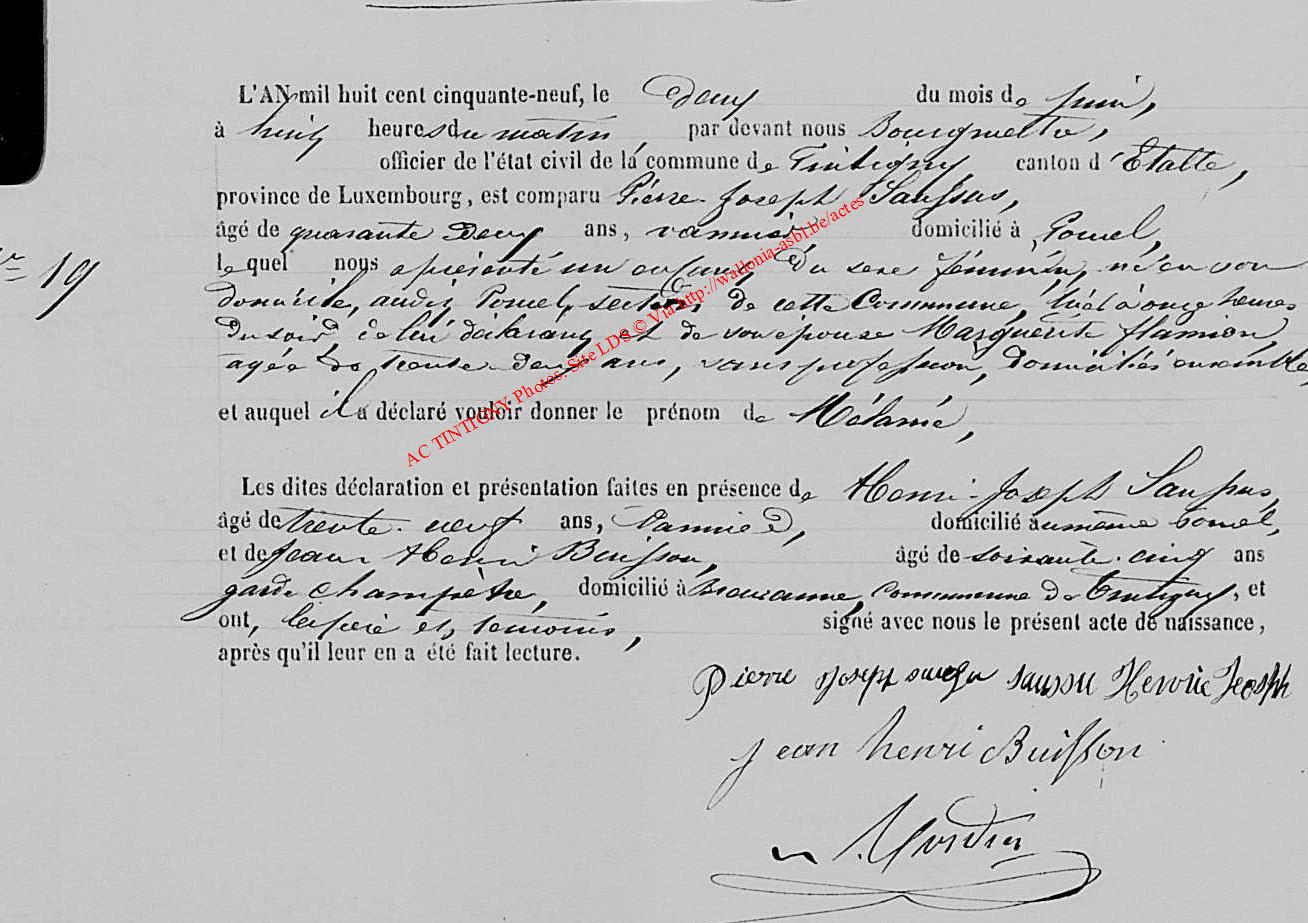 L'AN mil huit cent cinquante-neuf, le deux du mois de juin,
à huit heures du matin par devant nous
officier de l'état civil de la commune de Tintigny canton d'Etalle,
province de Luxembourg, est comparu Pierre-Joseph Saussus,
âgé de quarante deux ans, vannier domicilié à Poncel,
le quel nous a présenté un enfant du sexe féminin, né en son
domicile, audit Poncel, section de cette Commune, hier à onze heures
du soir, de lui déclarant et de son épouse Marguerite Hamion,
agée de trente deux ans, sans profession, domiciliés ensemble,
et auquel il a déclaré vouloir donner le prénom de Mélanie,
N° 19
Les dites déclaration et présentation faites en présence de Henri-Joseph Saussus,
âgé de trente-neuf ans, vannier, domicilié au même Poncel,
et de Jean Henri Buisson, âgé de soixante-cinq ans
garde champêtre, domicilié à commune de Tintigny, et
ont, le père et témoins, signé avec nous le présent acte de naissance,
après qu'il leur en a été fait lecture.
Pierre Joseph saussu Henrie Jeosph
Jean henri Buisson
AC TINTIGNY Photos: Site LDS © Via http://wallonia-asbl.be/actes